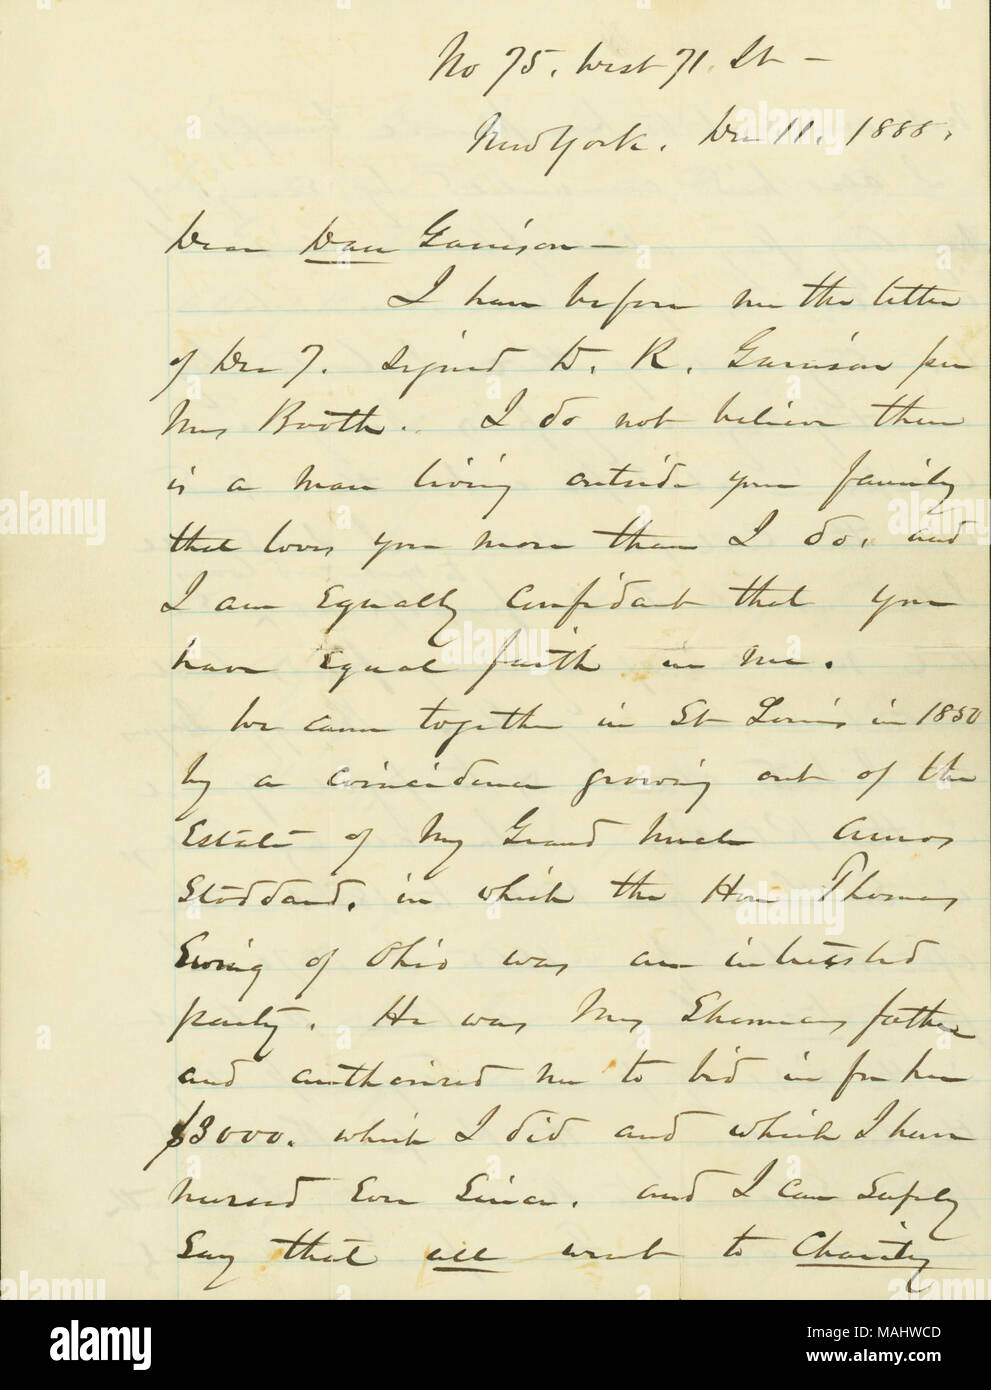 No 75. West 71. St —
New York. Dec 11. 1888.
Dear Dan Garrison —
I have before me the letter
of Dec 7. signed D. R. Garrison per
Mrs Booth. I do not believe there
is a man living outside your family
that loves you more than I do, and
I am Equally Confident that you
have Equal faith in me.
We came together in St Louis in 1850
by a coincidence growing out of the
Estate of my Grand Uncle Amos
Stoddard, in which the Hon Thomas
Ewing of Ohio was an interested
party. He was Mrs Shermans father
and authorised me to bid in for her
$3000. which I did and which I have
nursed Ever Since. and I can Safely
Say that all went to Charity
alamy
Image ID: MAHWCD
www.alamy.com